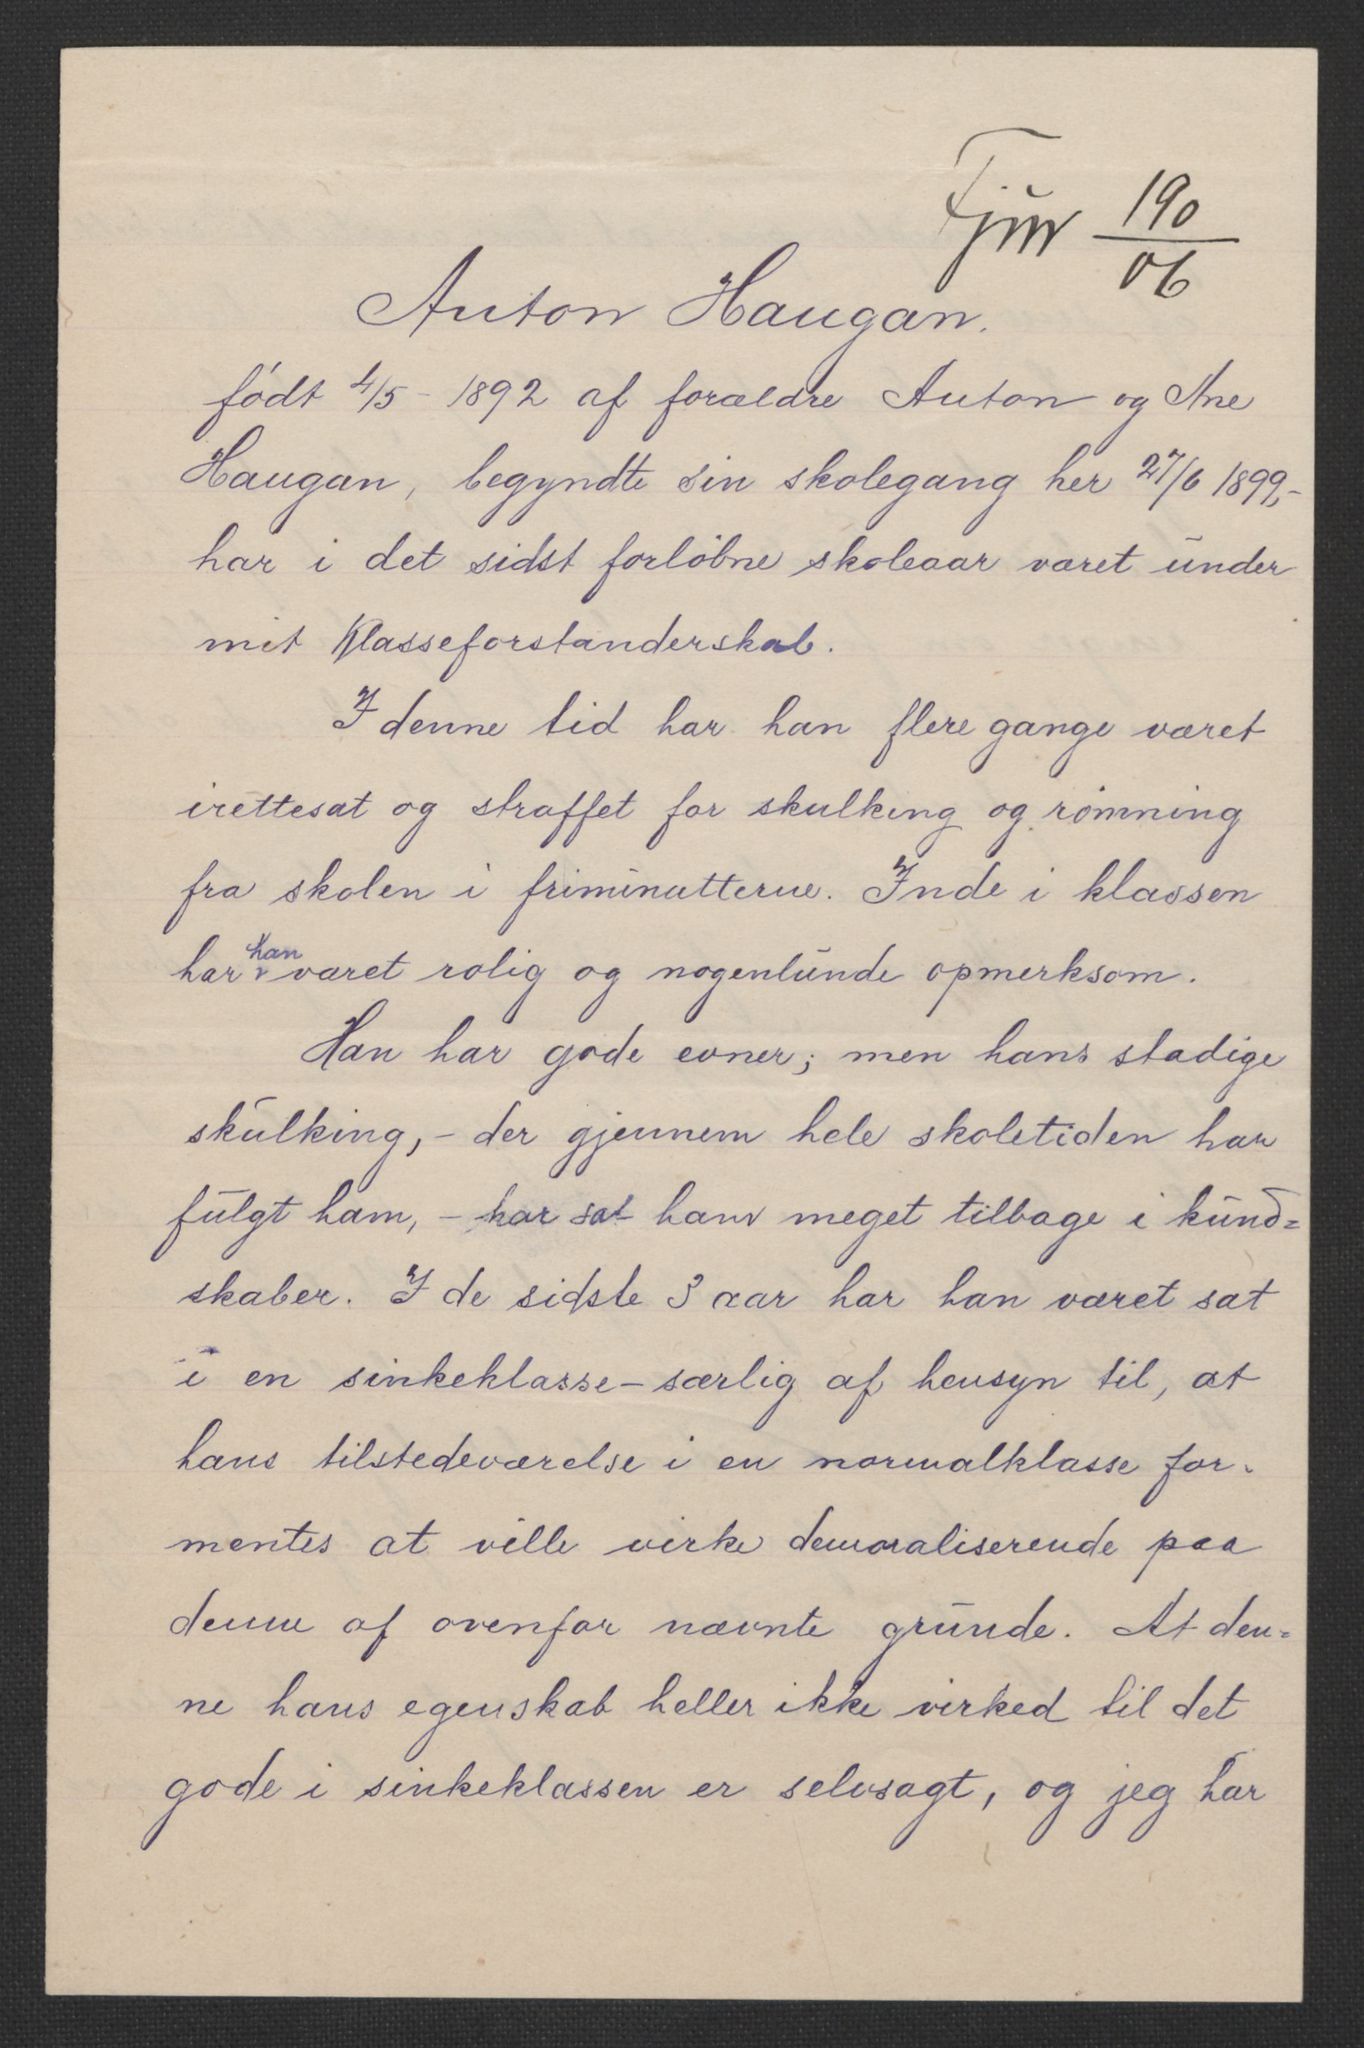 190
06
Anton Haugan.
født 4/5 - 1892 af forældre Anton og Ane
Haugan, begyndte sin skolegang her 27/6 1899,-
har i det sidst forløbne skoleaar været under
mit Klasseforstanderskab.
I denne tid har han flere gange været
irettesat og straffet for skulking og rømning
fra skolen i friminutterne. Inde i klassen
har han været rolig og nogenlunde opmerksom.
Han har gode evner; men hans stadige
skulking, - der gjennem hele skoletiden har
fulgt ham, - har sat ham meget tilbage i kund=
skaber. I de sidste 3 aar har han været sat
i en sinkeklasse - særlig af hensyn til, at
hans tilstedeværelse i en normalklasse for-
mentes at ville virke demoraliserende paa
denne af ovenfor nævnte grunde. At den=
ne hans egenskab heller ikke virked til det
gode i sinkeklassen er selvsagt, og jeg har